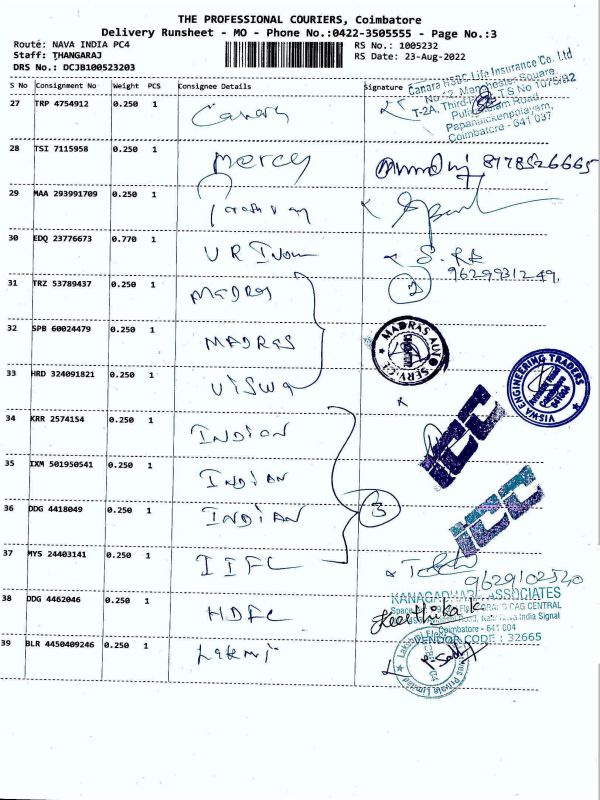 THE PROFESSIONAL COURIERS, Coimbatore
Delivery Runsheet - MO - Phone No.:0422-3505555 - Page No.:3
Route: NAVA INDIA PC4
Staff: THANGARAJ
DRS No.: DCJB100523203
RS No.: 1005232
RS Date: 23-Aug-2022
S No Consignment No Weight PCS Consignee Details Signature
Canara HSBC Life Insurance Co. Ltd
No / 2, Manchester Square,
T-2A, Third T.S No 1075/B2
Puliakulam Road,
Papanaickenpalayam,
Coimbatore - 641 037
27 TRP 4754912 0.250 1 Canara
28 TSI 7115958 0.250 1 mercy 8778526665
29 MAA 293991709 0.250 1
30 EDQ 23776673 0.770 1 UR
9629931249
31 TRZ 53789437 0.250 1 MADRAS 2
32 SPB 60024479 0.250 1 MADRAS
MADRAS AUTO SERVICE
COIMBATORE
33 HRD 324091821 0.250 1 VISWA
VISWA ENGINEERING TRADERS
Coimbatore
641004
34 KRR 2574154 0.250 1 INDIAN
ICC
35 IXM 501950541 0.250 1 INDIAN
36 DDG 4418049 0.250 1 INDIAN 3
ICC
37 MYS 24403141 0.250 1 IIFL
9629102520
38 DDG 4462046 0.250 1 HDFC
KANAGADHARA ASSOCIATES
CAG CENTRAL
Road, Near Nava India Signal
Coimbatore - 641 004
VENDOR CODE : 32665
Keerthika.k
39 BLR 4450409246 0.250 1 Lakmi
Private Limited